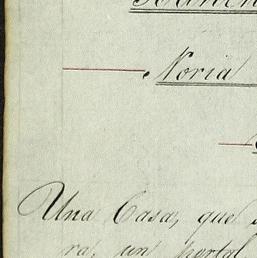 Noria
Una Casa, que
ra, un portal